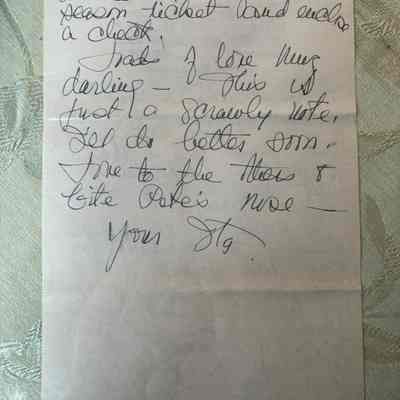 season ticket and enclose
a check.
Loads of love my
darling — This is
just a scrawly note.
I'll do better soon.
Love to the &
bite nose —
Your